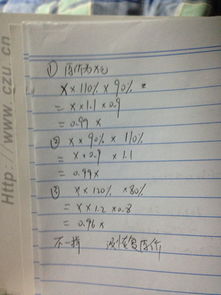 ① 原价为x元
x × 110% × 90%
= x × 1.1 × 0.9
= 0.99 x
② x × 90% × 110%
= x × 0.9 × 1.1
= 0.99x
③ x × 120% × 80%
= x × 1.2 × 0.8
= 0.96 x
不一样 没恢复原价
Http://www.czu.cn